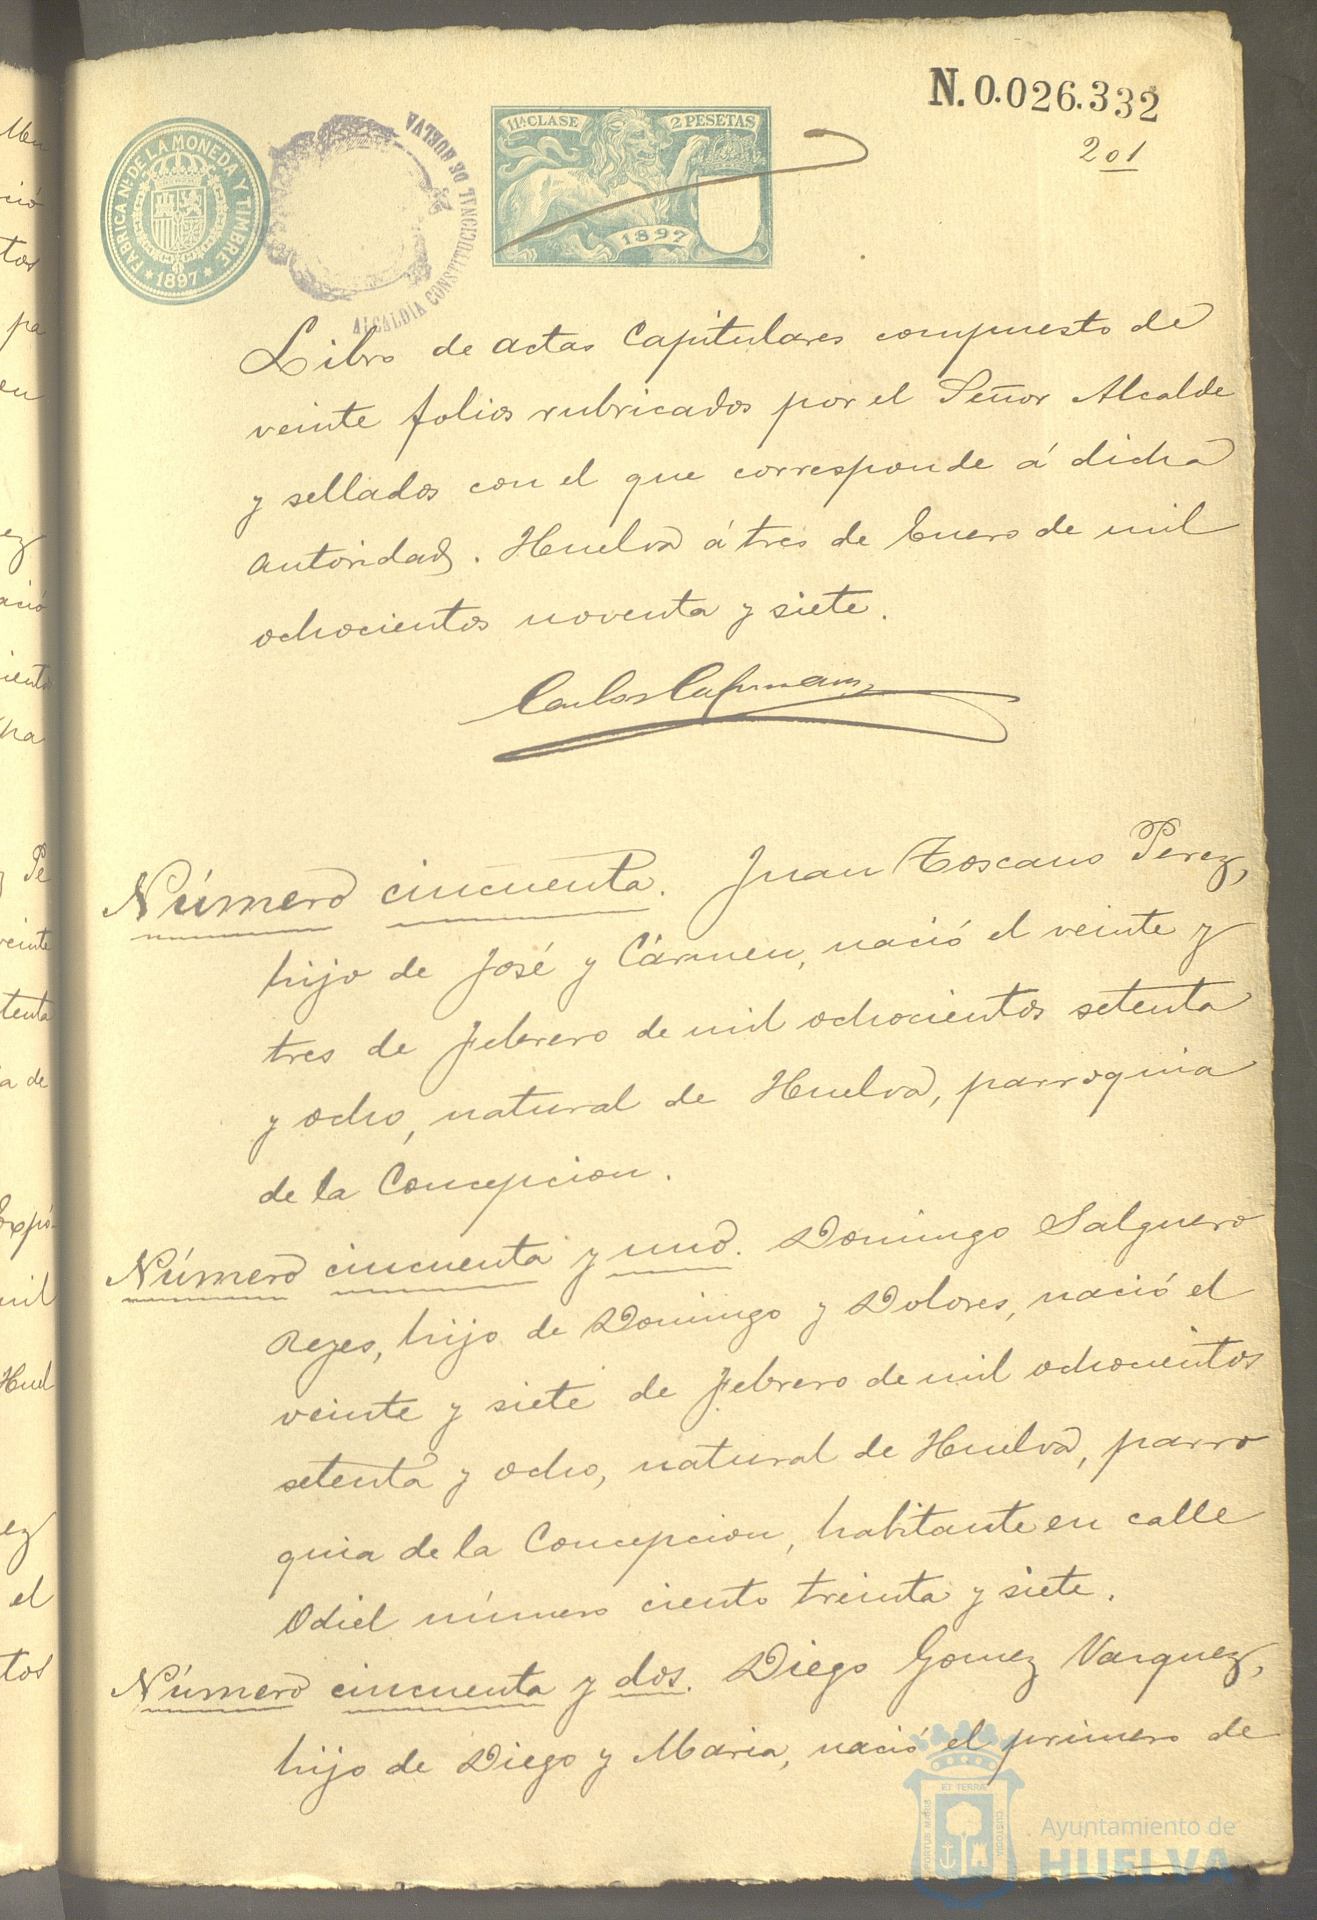 N. 0.026.332
201
FABRICA NL. DE LA MONEDA Y TIMBRE
* 1897 *
ALCALDÍA CONSTITUCIONAL DE HUELVA
11ª CLASE 2 PESETAS
1897
Libro de actas Capitulares compuesto de
veinte folios rubricados por el Señor Alcalde
y sellados con el que corresponde á dicha
autoridad. Huelva á tres de Enero de mil
ochocientos noventa y siete.
Carlos
Número cincuenta. Juan Toscano Perez,
hijo de José y Cármen, nació el veinte y
tres de Febrero de mil ochocientos setenta
y ocho, natural de Huelva, parroquia
de la Concepcion.
Número cincuenta y uno. Domingo Salguero
Reyes, hijo de Domingo y Dolores, nació el
veinte y siete de Febrero de mil ochocientos
setenta y ocho, natural de Huelva, parro
quia de la Concepcion, habitante en calle
Odiel número ciento treinta y siete.
Número cincuenta y dos. Diego Gomez Vazquez,
hijo de Diego y Maria, nació el primero de
PORTUS MARIS ET TERRÆ CUSTODIA
Ayuntamiento de
HUELVA